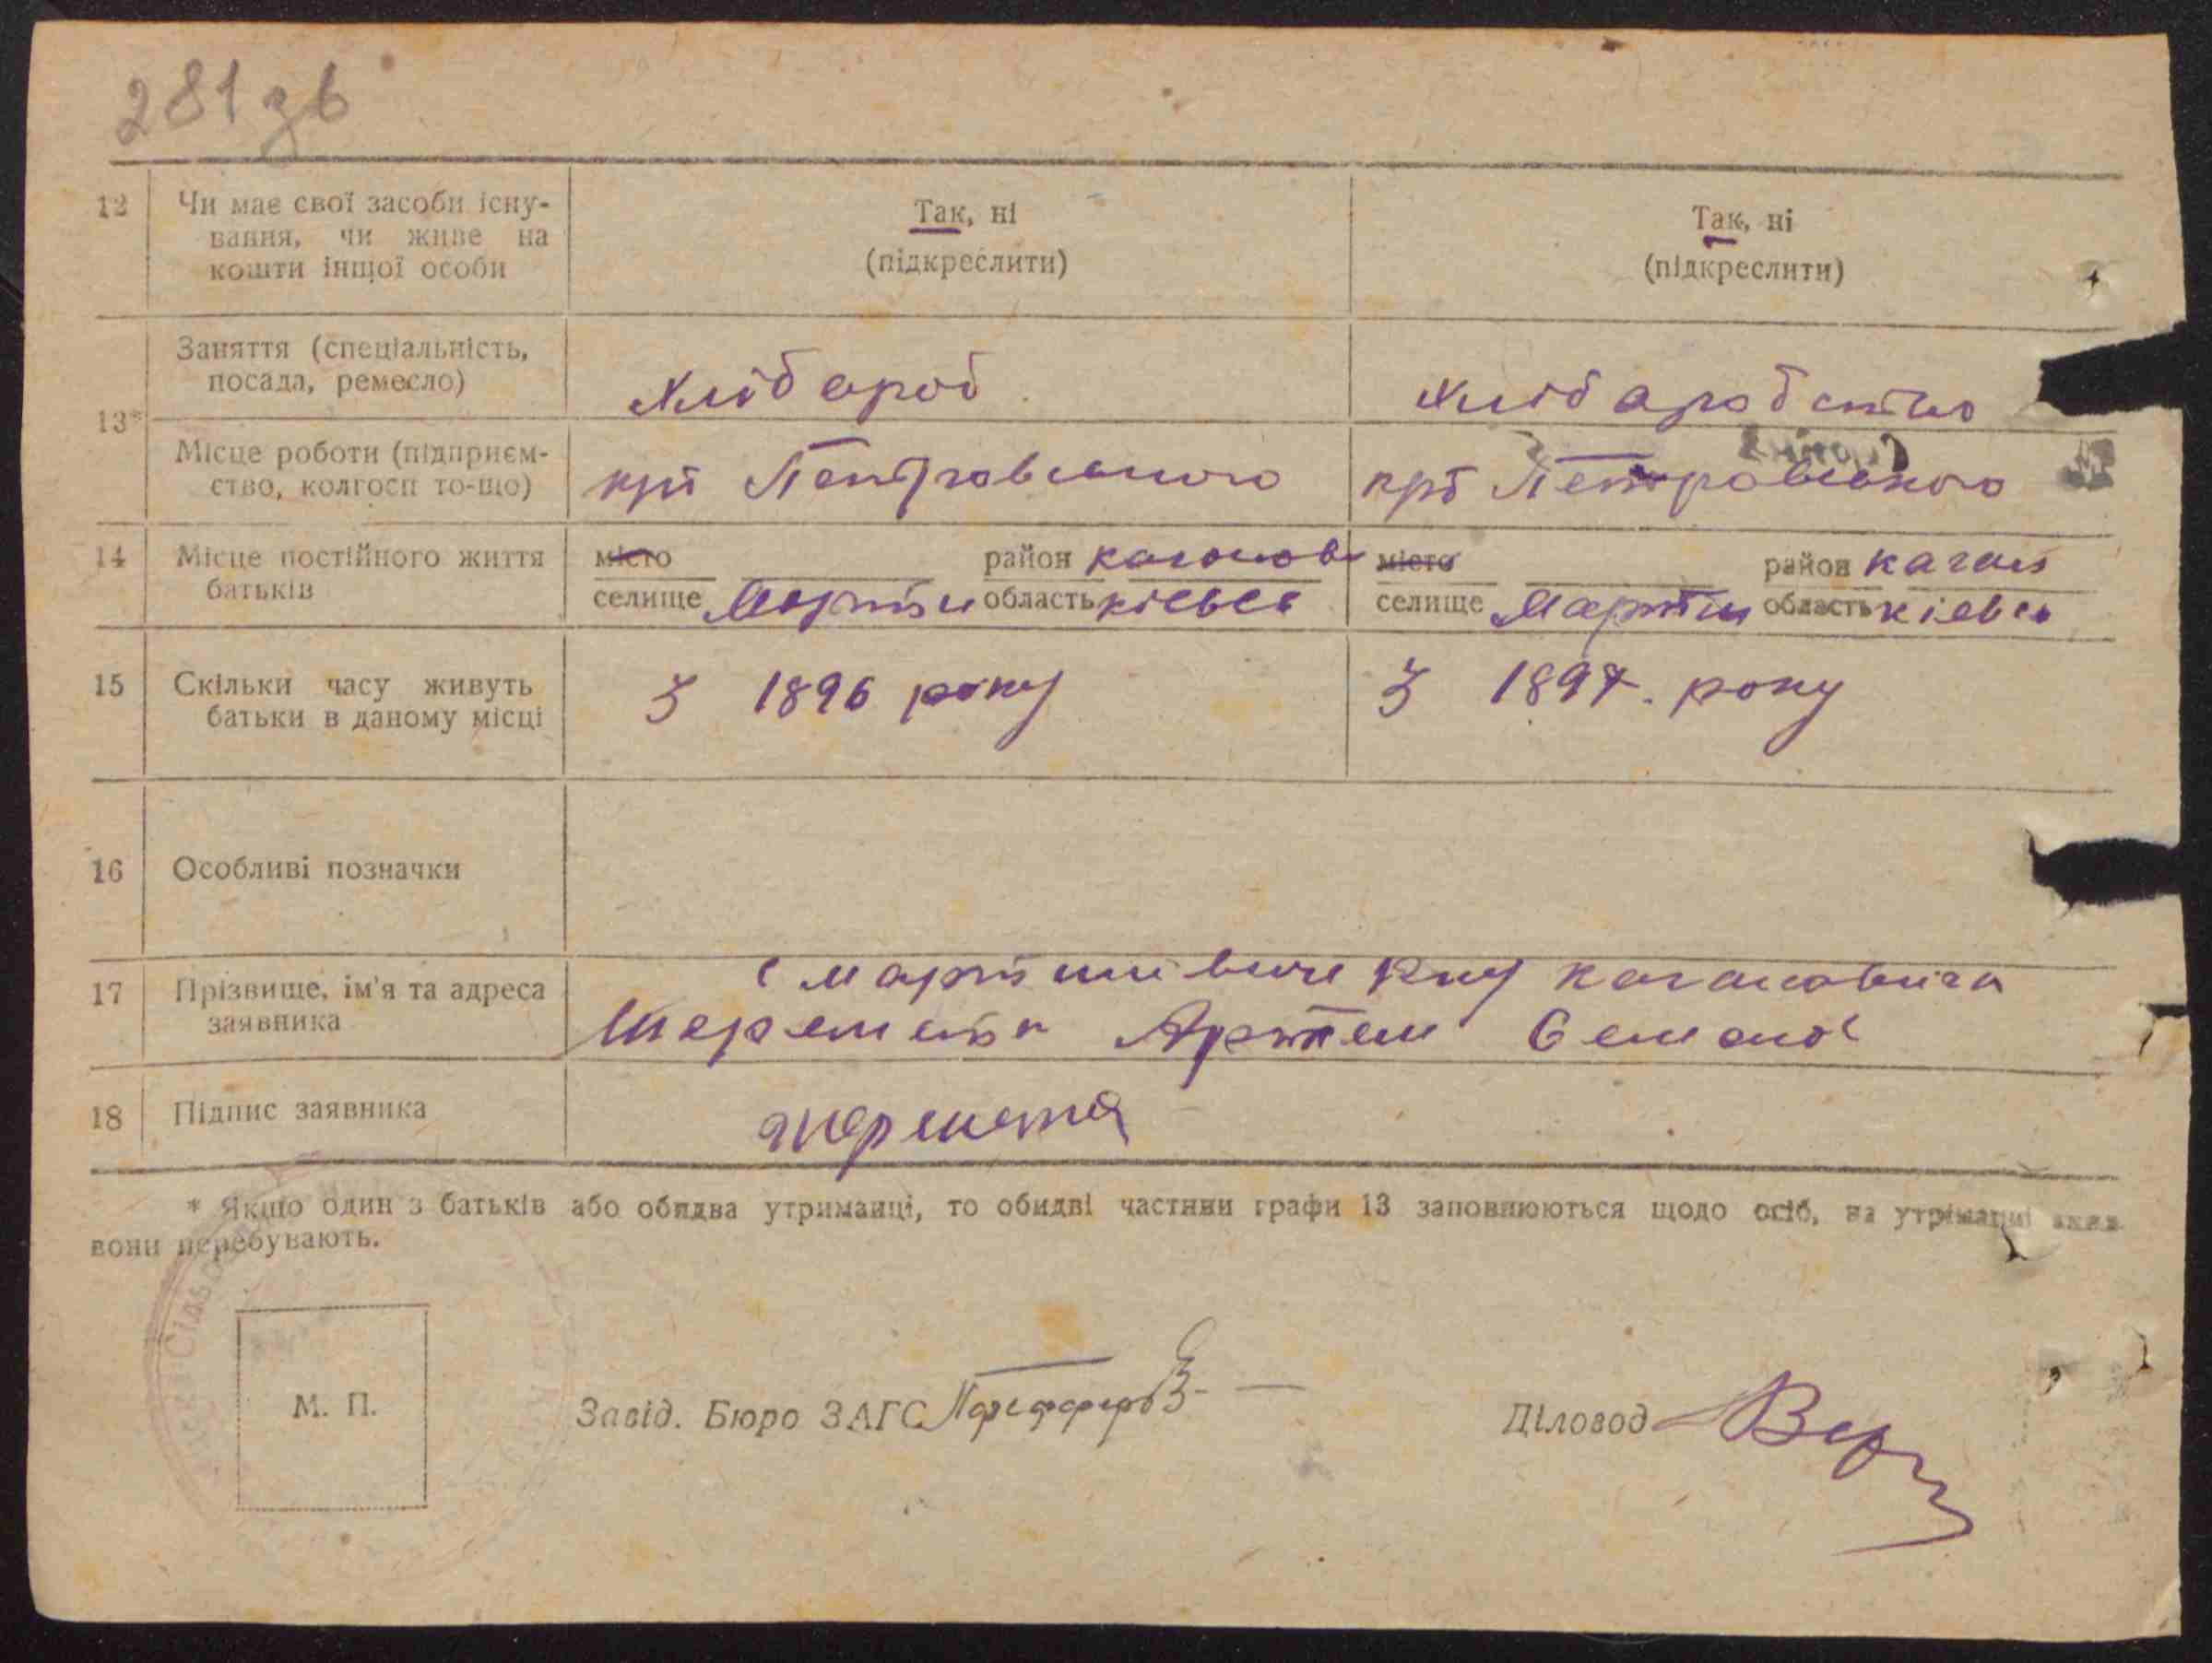 281 зв
12 Чи має свої засоби існу-
вання, чи живе на
кошти іншої особи
Так, ні
(підкреслити)
Так, ні
(підкреслити)
13*
Заняття (спеціальність,
посада, ремесло)
хлібороб
хліборобство
Місце роботи (підприєм-
ство, колгосп то-що)
Петровського
Петровського
14 Місце постійного життя
батьків
місто район
селище область
місто район каган
селище область
15 Скільки часу живуть
батьки в даному місці
З 1896 року
З 1897. року
16 Особливі позначки
17 Прізвище, ім'я та адреса
заявника
кагановича
Шеремета Артем Семенов
18 Підпис заявника
шеремета
* Якщо один з батьків або обидва утриманці, то обидві частини графи 13 заповнюються щодо осіб, на утриманні яких
вони перебувають.
М. П.
Завід. Бюро ЗАГС
Діловод